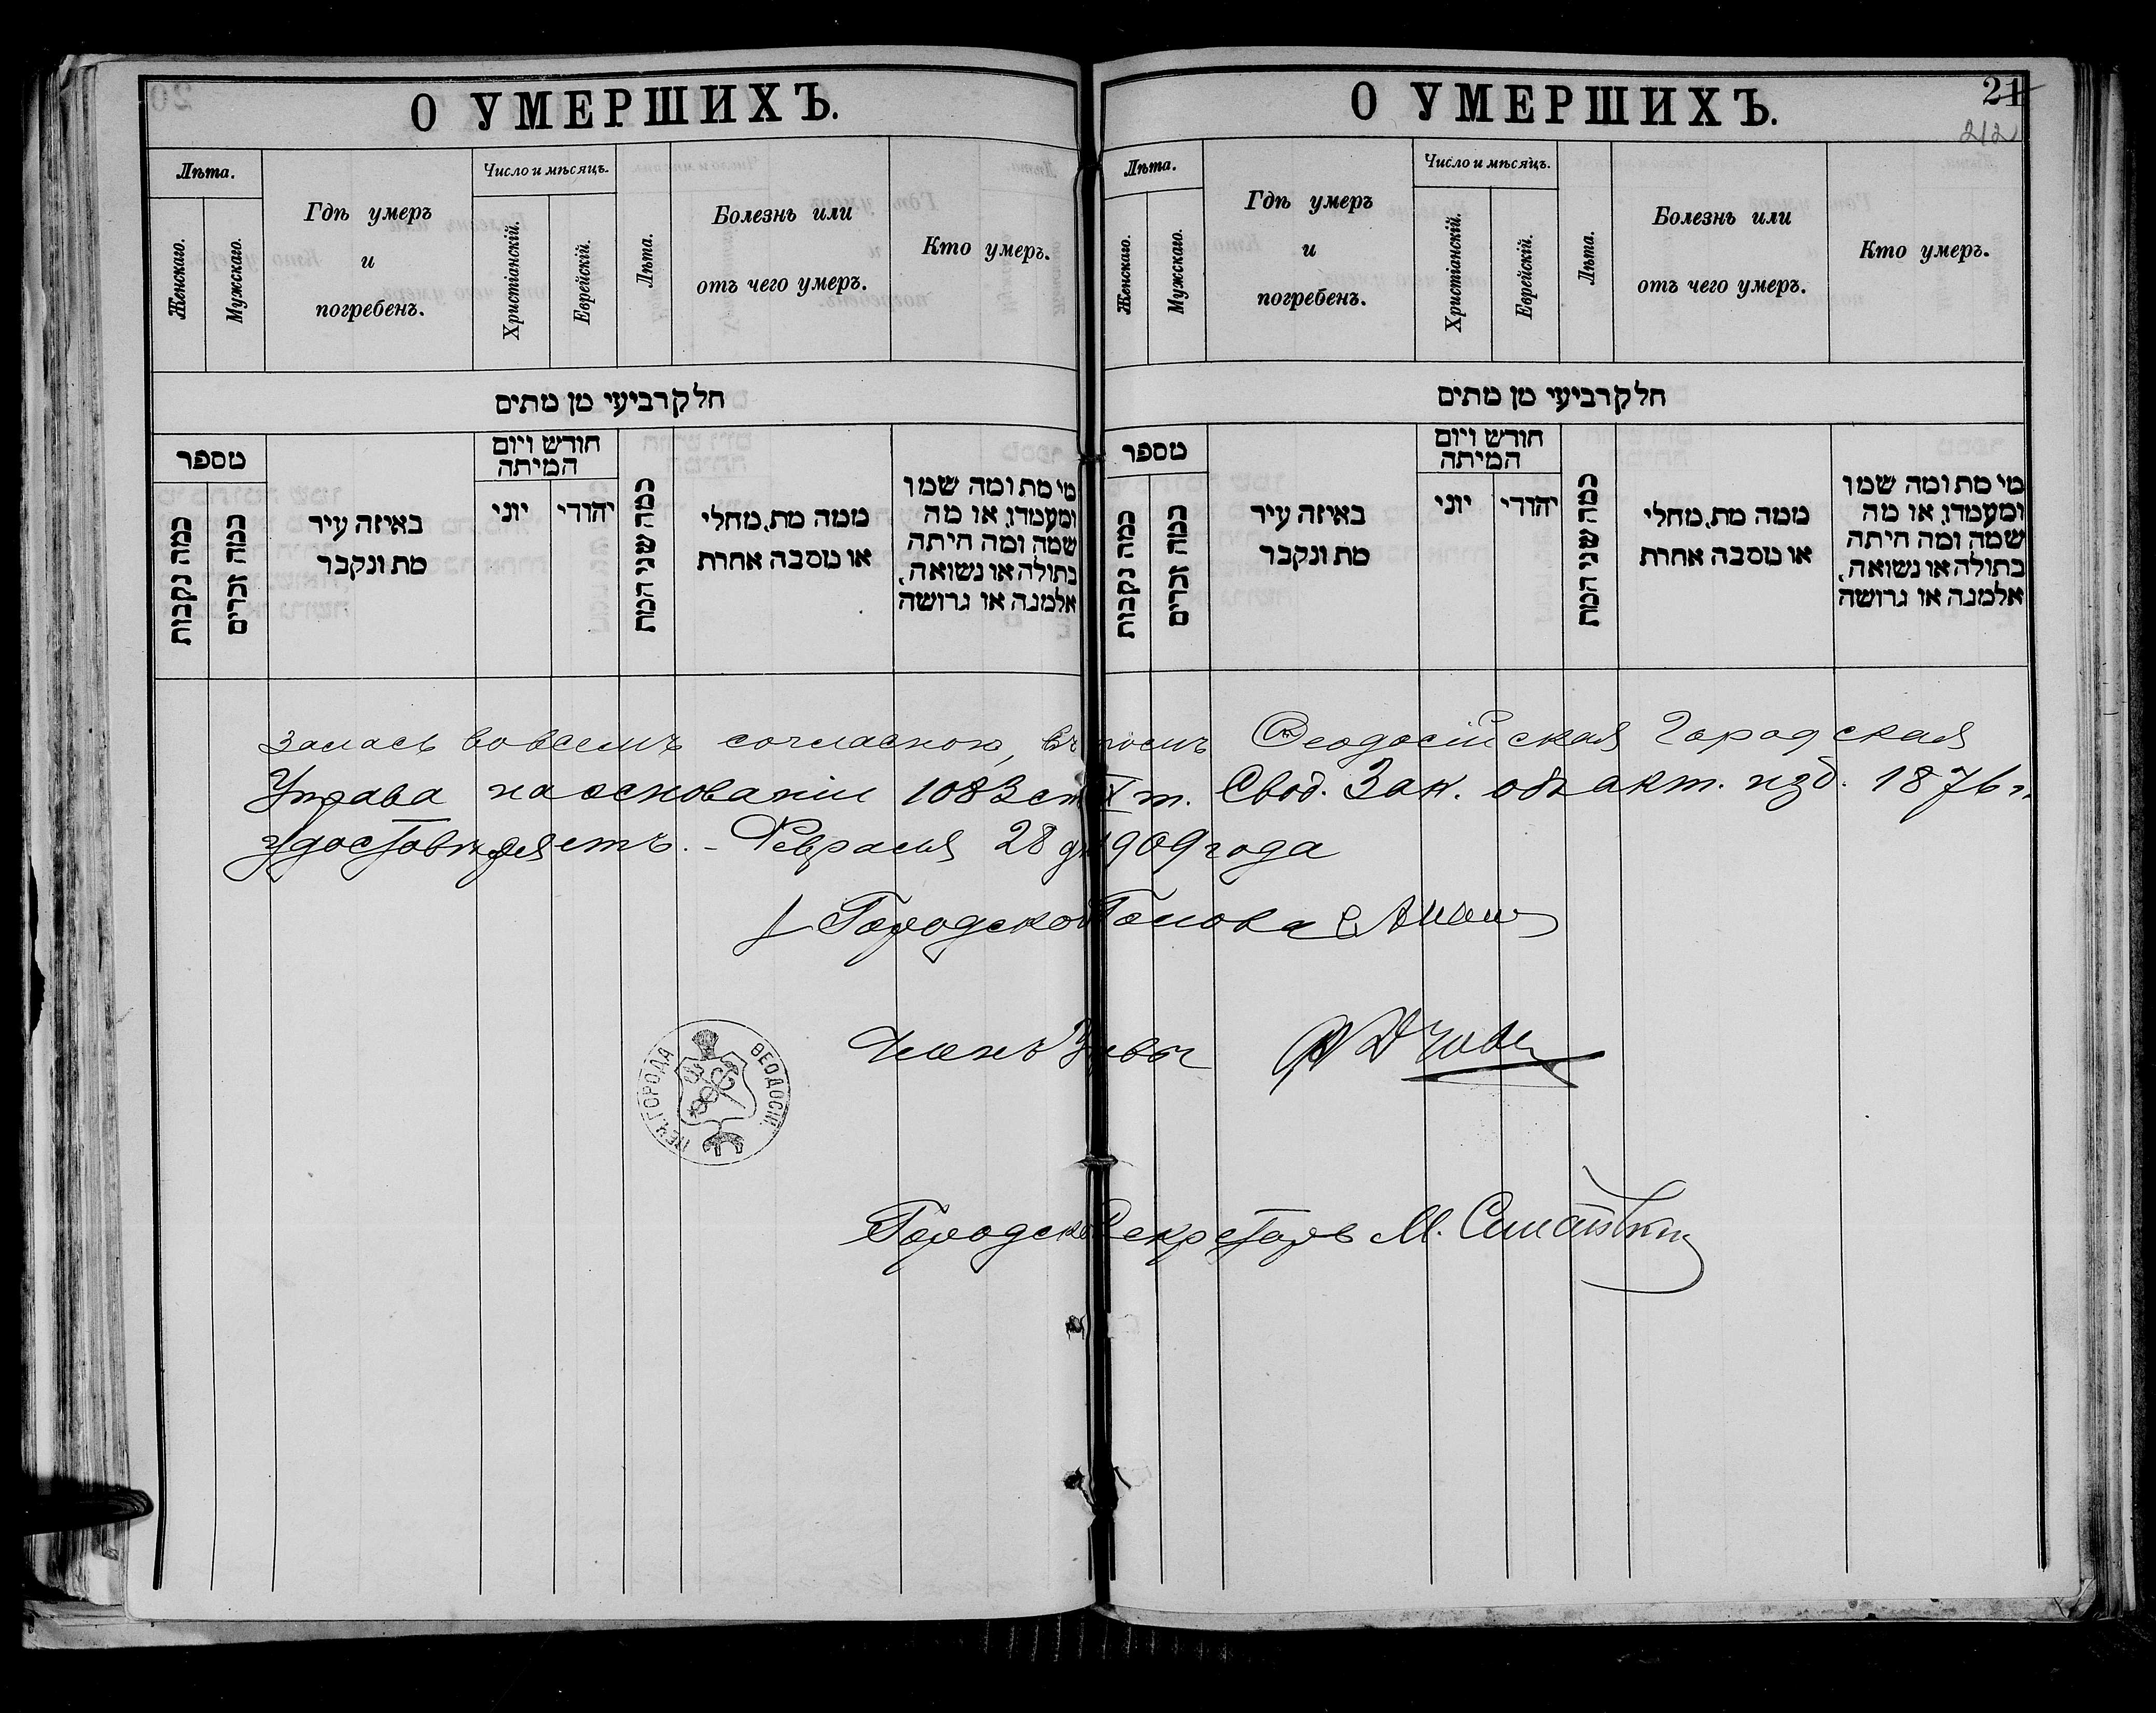 О УМЕРШИХЪ.
Лѣта.
Женскаго.
Мужскаго.
Гдѣ умеръ
и
погребенъ.
Число и мѣсяцъ.
Христіанскій.
Еврейскій.
Лѣта.
Болезнь или
отъ чего умеръ.
Кто умеръ.
חלק רביעי מן מתים
מספר
כמה נקבות
כמה זכרים
באיזה עיר
מת ונקבר
חודש ויום
המיתה
יוני
יהודי
כמה שני המת
ממה מת, מחלי
או מסבה אחרת
מי מת ומה שמו
ומעמדו, או מה
שמה ומה היתה
בתולה או נשואה,
אלמנה או גרושה
О УМЕРШИХЪ.
21
212
Лѣта.
Женскаго.
Мужскаго.
Гдѣ умеръ
и
погребенъ.
Число и мѣсяцъ.
Христіанскій.
Еврейскій.
Лѣта.
Болезнь или
отъ чего умеръ.
Кто умеръ.
חלק רביעי מן מתים
מספר
כמה נקבות
כמה זכרים
באיזה עיר
מת ונקבר
חודש ויום
המיתה
יוני
יהודי
כמה שני המת
ממה מת, מחלי
או מסבה אחרת
מי מת ומה שמו
ומעמדו, או מה
שמה ומה היתה
בתולה או נשואה,
אלמנה או גרושה
залась вовсемъ согласною, въ томъ Ѳеодосійская Городская
Управа на основаніи 1083 ст. X т. Свод. Зак. объ акт. изд. 1876 г.
удостовѣряетъ. - Февраля 28 дня 1909 года
Городской Голова
Членъ Управы
Городской Секретарь М.
ПЕЧ. ГОРОДА ѲЕОДОСІИ